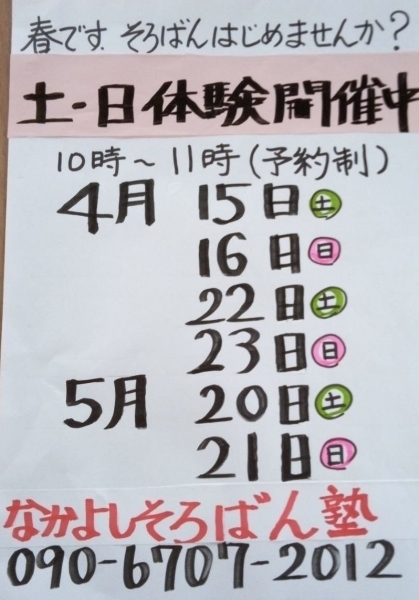 春です。そろばんはじめませんか?
土・日体験開催中
10時～11時(予約制)
4月 15日 土
16日 日
22日 土
23日 日
5月 20日 土
21日 日
なかよしそろばん塾
090-6707-2012